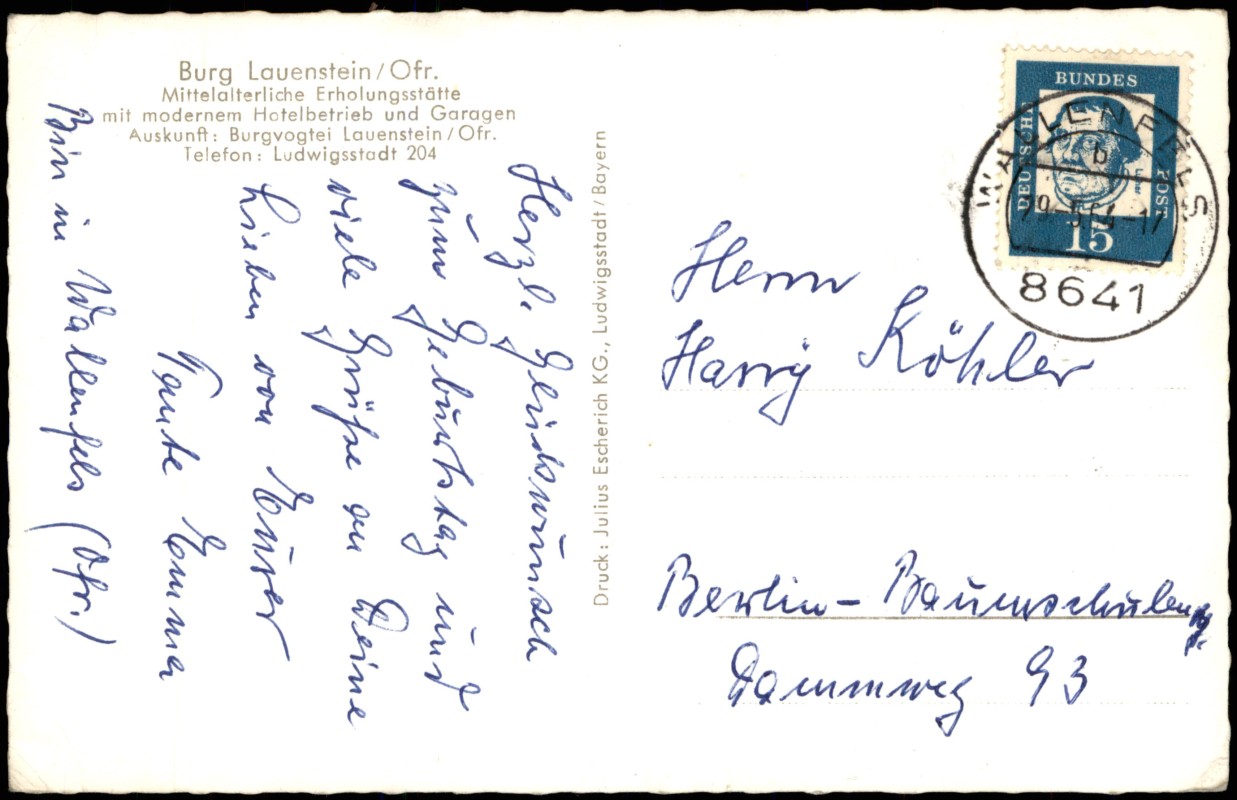 Burg Lauenstein/Ofr.
Mittelalterliche Erholungsstätte
mit modernem Hotelbetrieb und Garagen
Auskunft: Burgvogtei Lauenstein/Ofr.
Telefon: Ludwigsstadt 204
Herzl. Glückwunsch
zum Geburtstag und
viele Grüße an Deine
Lieben von Eurer
Tante Emma
Bin in Wallenfels (Ofr.)
Druck: Julius Escherich KG., Ludwigsstadt/Bayern
BUNDES
DEUTSCHE
POST
Luther
15
WALLENFELS
b
29.-5.64-17
8641
Herrn
Harry Köhler
Berlin-Baumschulenw.
Dammweg 93